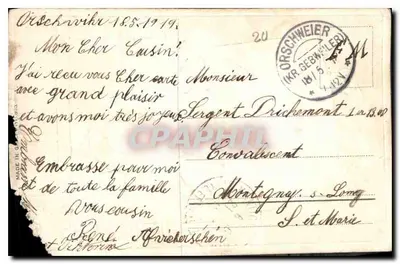 Orschwihr 18.5.1919.
Mon Cher Cousin!
J'ai recu vous Cher carte
avec grand plaisir
et avons moi très joyeux
Embrasse pour moi
et de toute la famille
Vous cousin
René
20
ORSCHWEIER
(KR. GEBWEILER)
18/5
Monsieur
Sergent Drichemont
Convalescent
Montegnay s. Long
S. et Marne
MADE IN